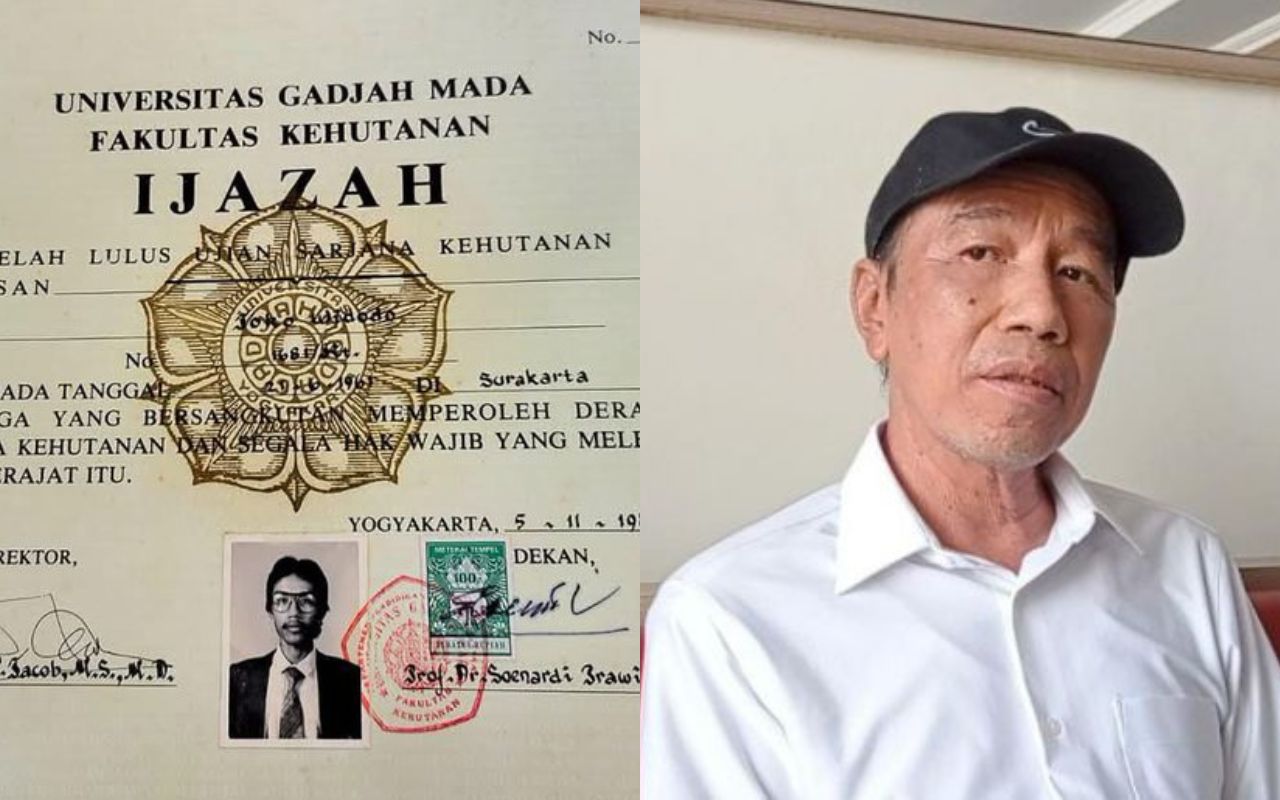 No.
UNIVERSITAS GADJAH MADA
FAKULTAS KEHUTANAN
IJAZAH
ELAH LULUS UJIAN SARJANA KEHUTANAN
SAN
Joko Widodo
No. 1681/KT.
ADA TANGGAL 21-6-1961 DI Surakarta
GA YANG BERSANGKUTAN MEMPEROLEH DERA
A KEHUTANAN DAN SEGALA HAK WAJIB YANG MELE
ERAJAT ITU.
YOGYAKARTA, 5 - 11 - 19
REKTOR,
DEKAN,
METERAI TEMPEL
100
FAKULTAS
KEHUTANAN
Jacob, M.S., M.D.
Prof. Dr. Soenardi Prawi